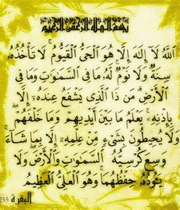 بسم الله الرحمن الرحيم
ٱللَّهُ لَآ إِلَٰهَ إِلَّا هُوَ ٱلْحَىُّ ٱلْقَيُّومُ لَا تَأْخُذُهُۥ
سِنَةٌ وَلَا نَوْمٌ لَّهُۥ مَا فِى ٱلسَّمَٰوَٰتِ وَمَا فِى
ٱلْأَرْضِ مَن ذَا ٱلَّذِى يَشْفَعُ عِندَهُۥٓ إِلَّا
بِإِذْنِهِۦ يَعْلَمُ مَا بَيْنَ أَيْدِيهِمْ وَمَا خَلْفَهُمْ
وَلَا يُحِيطُونَ بِشَىْءٍ مِّنْ عِلْمِهِۦٓ إِلَّا بِمَا شَآءَ
وَسِعَ كُرْسِيُّهُ ٱلسَّمَٰوَٰتِ وَٱلْأَرْضَ وَلَا
يَـُٔودُهُۥ حِفْظُهُمَا وَهُوَ ٱلْعَلِىُّ ٱلْعَظِيمُ
البقرة 255